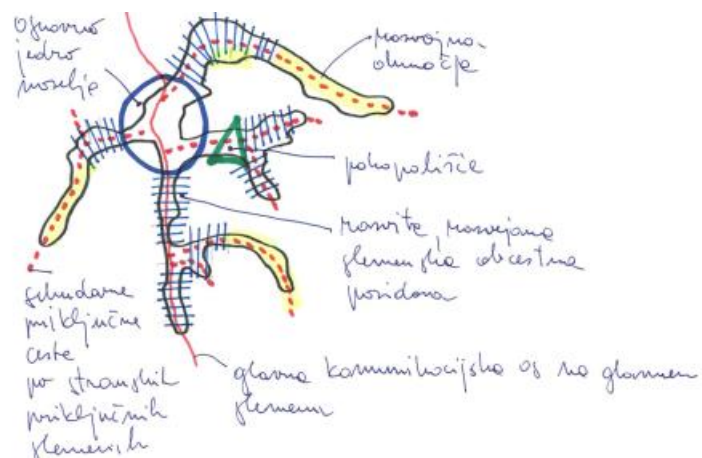 Osnovno
jedro
naselja
razvojno
območje
pokopališče
razvita, razvejana
slemenska obcestna
pozidava
sekundarne
priključne
ceste
po stranskih
priključnih
slemenih
glavna komunikacijska os na glavnem
slemenu